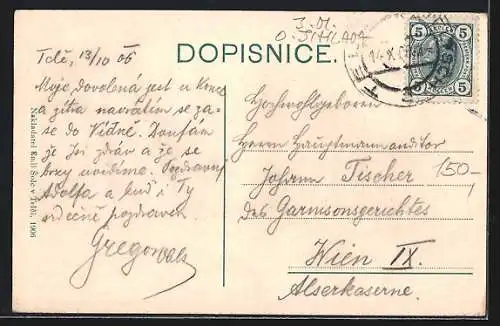 3. M.
O. JIHLAVA
DOPISNICE.
5 5
5 5
14 X
Telč, 13/10 06
Moje dovolená jest u konce
a zítra navrátím se za-
se do Vídně. Doufám
že Jsi zdráv a že se
brzy uvidíme. Pozdravuj
Adolfa a buď i Ty
srdečně pozdraven
Gregor
Hochwohlgeboren
Herrn Hauptmannauditor
Johann Tischer
150,-
des Garnisonsgerichtes
Wien IX.
Alserkaserne.
Nakladatel Emil Šolc v Telči, 1906